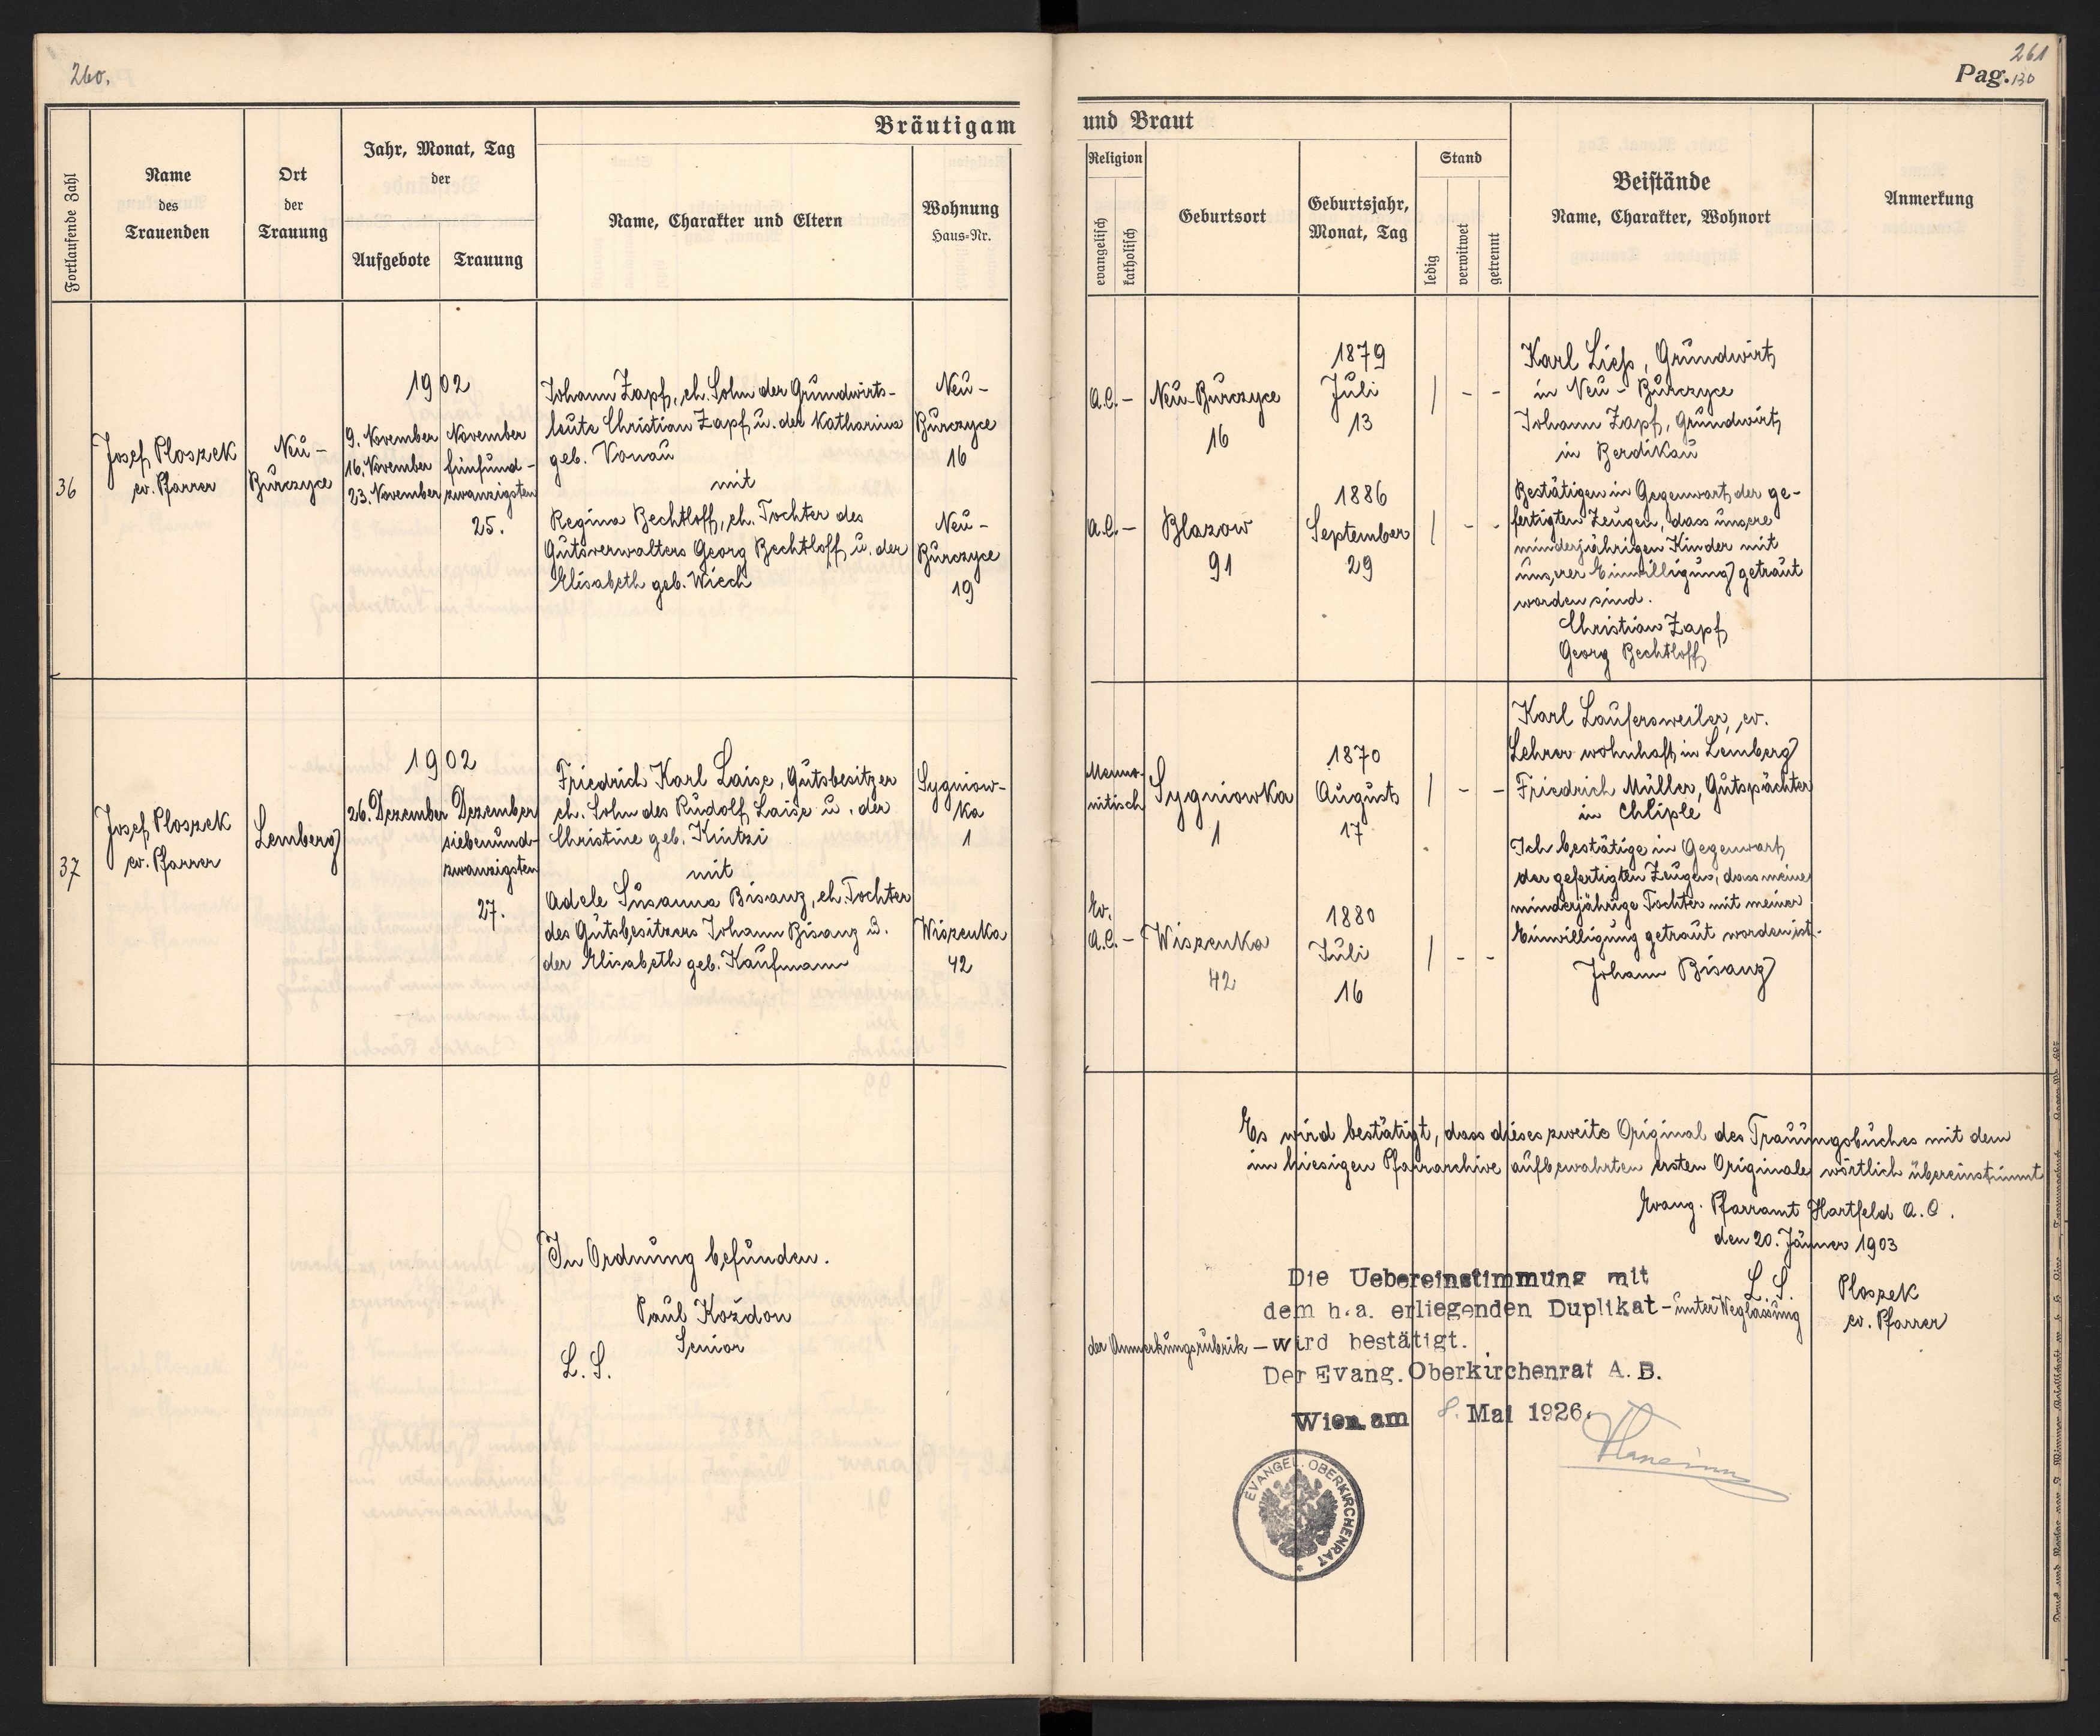 260.
Bräutigam
Fortlaufende Zahl
Name
des
Trauenden
Ort
der
Trauung
Jahr, Monat, Tag
der
Aufgebote
Trauung
Name, Charakter und Eltern
Wohnung
Haus=Nr.
36
Josef Ploszek
ev. Pfarrer
Neu-
Burczyce
1902
9. November
16. November
23. November
November
fünfund-
zwanzigsten
25.
Johann Zapf, eh. Sohn der Grundwirts-
leute Christian Zapf u. der Katharina
geb. Vonau
mit
Regina Bechtloff, eh. Tochter des
Gutsverwalters Georg Bechtloff u. der
Elisabeth geb. Wiech
Neu-
Burczyce
16
Neu-
Burczyce
19
37
Josef Ploszek
ev. Pfarrer
Lemberg
1902
26. Dezember
Dezember
siebenund-
zwanzigsten
27.
Friedrich Karl Laise, Gutsbesitzer
eh. Sohn des Rudolf Laise u. der
Christine geb. Kintzi
mit
Adele Susanna Bisanz, eh. Tochter
des Gutsbesitzers Johann Bisanz u.
der Elisabeth geb. Kaufmann
Sygniow-
ka
1
Wiszenka
42
In Ordnung befunden.
Paul Kożdon
Senior
L. S.
261
Pag. 130
und Braut
Religion
evangelisch
katholisch
Geburtsort
Geburtsjahr,
Monat, Tag
Stand
ledig
verwitwet
getrennt
Beistände
Name, Charakter, Wohnort
Anmerkung
A.C. -
Neu-Burczyce
16
1879
Juli
13
| - -
Karl Liess, Grundwirt,
in Neu-Burczyce
Johann Zapf, Grundwirt,
in Berdikau
A.C. -
Blazow
91
1886
September
29
| - -
Bestätigen in Gegenwart der ge-
fertigten Zeugen, dass unsere
minderjährigen Kinder mit
unserer Einwilligung getraut
worden sind.
Christian Zapf
Georg Bechtloff
Menno-
nitisch
Sygniowka
1
1870
August
17
| - -
Karl Laufersweiler, ev.
Lehrer wohnhaft in Lemberg
Friedrich Müller, Gutspächter
in Chliple
Ev.
A.C. -
Wiszenka
42
1880
Juli
16
| - -
Ich bestätige in Gegenwart,
der gefertigten Zeugen, dass meine
minderjährige Tochter mit meiner
Einwilligung getraut worden ist.
Johann Bisanz
Es wird bestätigt, dass dieses zweite Original des Trauungsbuches mit dem
im hiesigen Pfarrarchive aufbewahrten ersten Originale wörtlich übereinstimmt
Evang. Pfarramt Hartfeld A.C.
den 20. Jänner 1903
L. S.
Ploszek
ev. Pfarrer
Die Uebereinstimmung mit
dem h.a. erliegenden Duplikat - unter Weglassung
der Anmerkungsrubrik - wird bestätigt.
Der Evang. Oberkirchenrat A. B.
Wien am 8. Mai 1926.
EVANGEL. OBERKIRCHENRAT